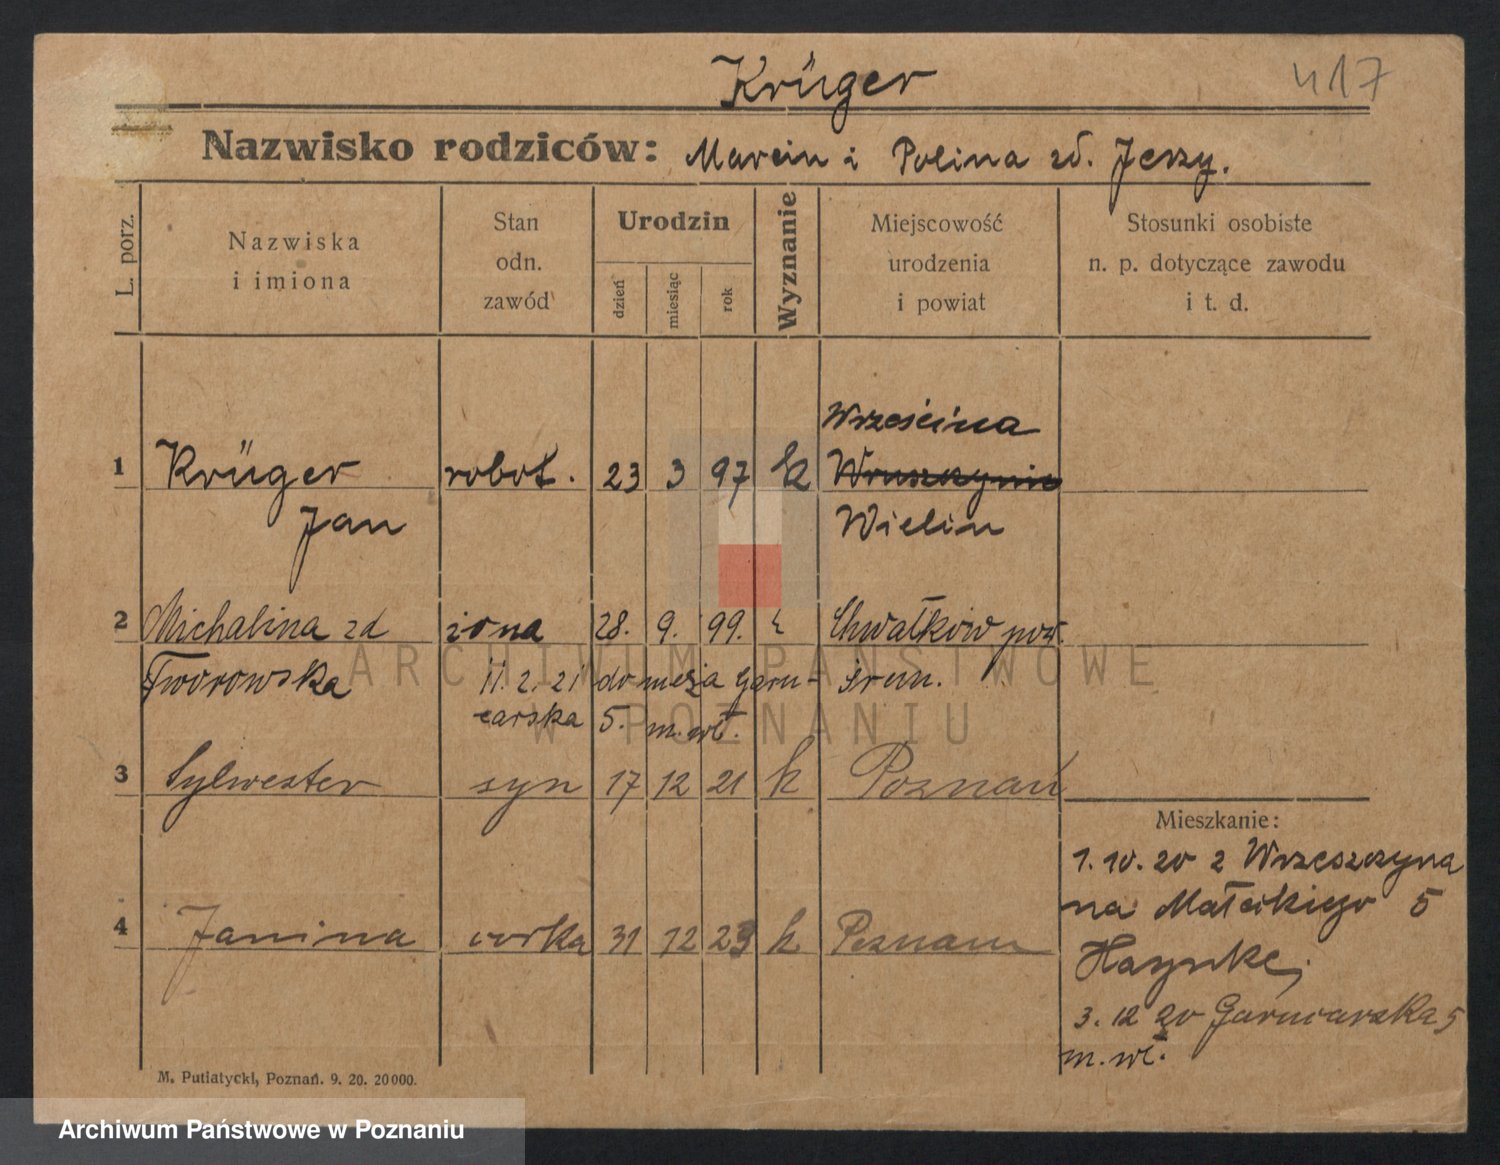 Krüger
417
Nazwisko rodziców: Marcin i Polina zd. Jerzy.
L. porz.
Nazwiska
i imiona
Stan
odn.
zawód
Urodzin
dzień
miesiąc
rok
Wyznanie
Miejscowość
urodzenia
i powiat
Stosunki osobiste
n. p. dotyczące zawodu
i t. d.
Wrześcina
1 Krüger robot. 23 3 97 k Wruszczynie
Jan Wielin
2 Michalina zd żona 28. 9. 99. k Chwałków pow.
Tworowska 11. 2. 21 do męża Garn- Śrem.
carska 5. m. wł.
3 Sylwester syn 17 12 21 k Poznań
Mieszkanie:
1. 10. 20 z Wrzeszczyna
na Małeckiego 5
4 Janina córka 31 12 23 k Poznań
3. 12 20 Garncarska 5
m. wł.
M. Putiatycki, Poznań. 9. 20. 20000.
ARCHIWUM PAŃSTWOWE
W POZNANIU
Archiwum Państwowe w Poznaniu